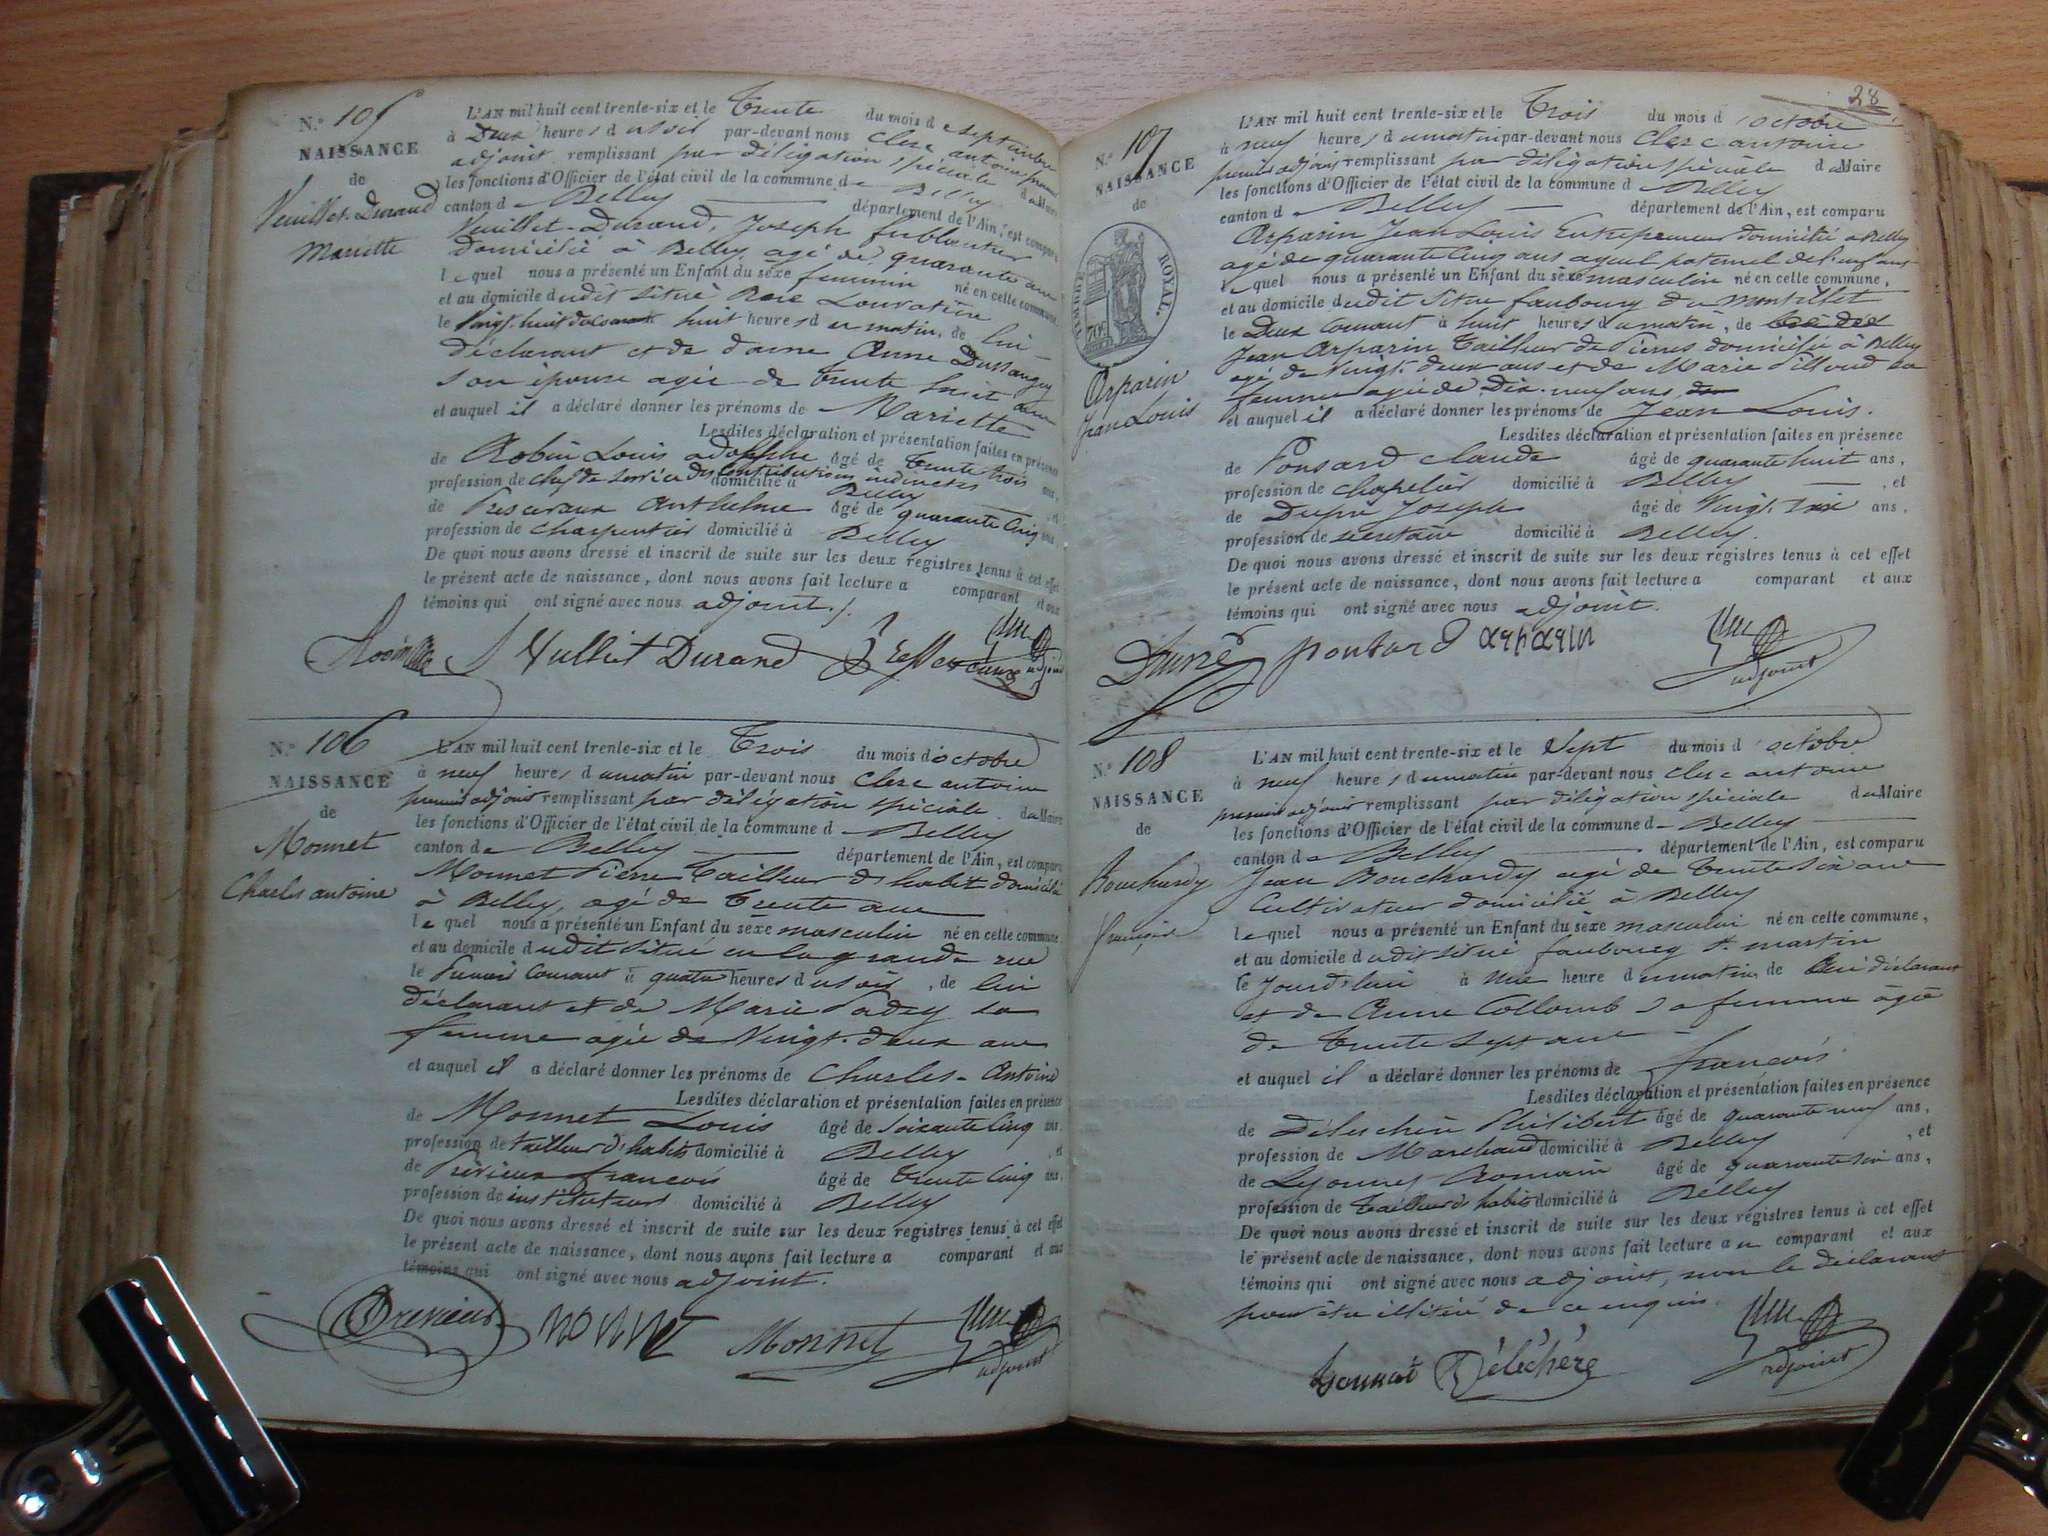 N.° 105
NAISSANCE
de
Veuillet-Durand
Mariette
L'AN mil huit cent trente-six et le Trente du mois de septembre
à Deux heures du soir par-devant nous Clerc antoine premier
adjoint remplissant par déligation spéciale du Maire
les fonctions d'Officier de l'état civil de la commune de Belley
canton de Belley département de l'Ain, est comparu
Veuillet-Durand, Joseph ferblantier
domicilié à Belley agé de quarante ans
lequel nous a présenté un Enfant du sèxe feminin né en cette commune,
et au domicile dudit situé Rue
le Vingt-huit du courant huit heures du matin, de lui
déclarant et de dame Anne
son épouse agée de trente huit ans
et auquel il a déclaré donner les prénoms de Mariette
Lesdites déclaration et présentation faites en présence
de Robin Louis adolphe âgé de trente trois ans,
profession de chef de service des Contributions indirectes domicilié à Belley, et
de Anthelme âgé de quarante Cinq ans,
profession de charpentier domicilié à Belley
De quoi nous avons dressé et inscrit de suite sur les deux registres tenus à cet effet
le présent acte de naissance, dont nous avons fait lecture a comparant et aux
témoins qui ont signé avec nous adjoint.
Robin Vulliet Durand adjoint
N.° 106
NAISSANCE
de
Monnet
Charles antoine
L'AN mil huit cent trente-six et le Trois du mois d'octobre
à neuf heures du matin par-devant nous Clerc antoine
premier adjoint remplissant par déligation spéciale du Maire
les fonctions d'Officier de l'état civil de la commune d Belley
canton de Belley département de l'Ain, est comparu
Monnet Pierre Tailleur d'habits domicilié
à Belley, agé de Trente ans
lequel nous a présenté un Enfant du sèxe masculin né en cette commune
et au domicile dudit situé en la grande rue
le Premier Courant à quatre heures du soir, de lui
déclarant et de Marie sa
femme agée de Vingt-deux ans
et auquel il a déclaré donner les prénoms de Charles-Antoine
Lesdites déclaration et présentation faites en présence
de Monnet Louis âgé de soixante Cinq ans,
profession de tailleur d'habits domicilié à Belley, et
de françois âgé de trente Cinq ans,
profession de instituteur domicilié à Belley
De quoi nous avons dressé et inscrit de suite sur les deux registres tenus à cet effet
le présent acte de naissance, dont nous avons fait lecture a comparant et aux
témoins qui ont signé avec nous adjoint.
Monnet adjoint
28
N.° 107
NAISSANCE
de
TIMBRE ROYAL.
70c
Arparin
Jean Louis
L'AN mil huit cent trente-six et le Trois du mois d'octobre
à neuf heures du matin par-devant nous Clerc antoine
premier adjoint remplissant par déligation spéciale du Maire
les fonctions d'Officier de l'état civil de la commune d Belley
canton de Belley département de l'Ain, est comparu
Arparin Jean Louis Entrepreneur domicilié à Belley
agé de quarante Cinq ans ayeul paternel de l'enfant
lequel nous a présenté un Enfant du sèxe masculin né en cette commune,
et au domicile dudit situé faubourg du
le Deux Courant à huit heures du matin, de
Jean Arparin Tailleur de Pierres domicilié à Belley
agé de Vingt-deux ans et de Marie Pilloud sa
femme agée de Dix-neuf ans
et auquel il a déclaré donner les prénoms de Jean Louis.
Lesdites déclaration et présentation faites en présence
de Ponsard Claude âgé de quarante huit ans,
profession de chapelier domicilié à Belley, et
de Dupré Joseph âgé de Vingt-six ans,
profession de secretaire domicilié à Belley.
De quoi nous avons dressé et inscrit de suite sur les deux registres tenus à cet effet
le présent acte de naissance, dont nous avons fait lecture a comparant et aux
témoins qui ont signé avec nous adjoint.
Dupré ponsard arparin adjoint
N.° 108
NAISSANCE
de
Bouchardy
françois
L'AN mil huit cent trente-six et le Sept du mois d'octobre
à neuf heures du matin par-devant nous Clerc antoine
premier adjoint remplissant par déligation spéciale du Maire
les fonctions d'Officier de l'état civil de la commune de Belley
canton de Belley département de l'Ain, est comparu
Jean Bouchardy agé de trente six ans
Cultivateur domicilié à Belley
lequel nous a présenté un Enfant du sèxe masculin né en cette commune,
et au domicile dudit situé faubourg St. martin
le jourd'hui à une heure du matin, de lui déclarant
et de Anne Collomb sa femme âgée
de trente sept ans
et auquel il a déclaré donner les prénoms de françois.
Lesdites déclaration et présentation faites en présence
de Philibert âgé de quarante neuf ans,
profession de Marchand domicilié à Belley, et
de Lyonnet Romain âgé de quarante six ans,
profession de Tailleur d'habits domicilié à Belley
De quoi nous avons dressé et inscrit de suite sur les deux registres tenus à cet effet
le présent acte de naissance, dont nous avons fait lecture au comparant et aux
témoins qui ont signé avec nous adjoint, non le déclarant
pour être illitéré de ce enquis.
Déléchère adjoint